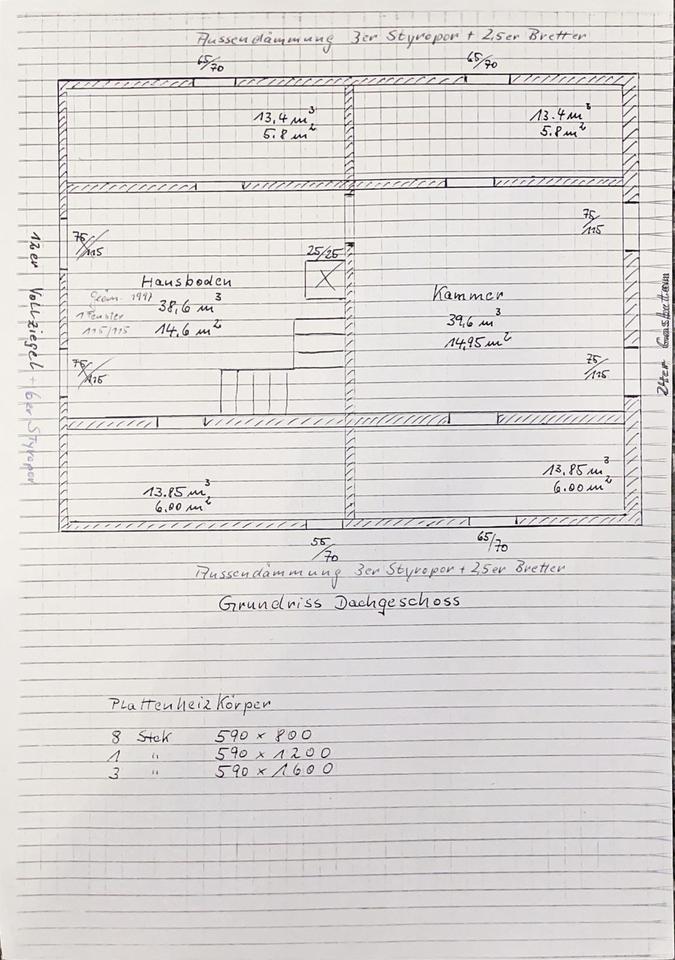 Aussendämmung 3er Styropor + 2,5er Bretter
65/70
65/70
13,4 m³
5.8 m²
13.4 m³
5.8 m²
75/115
75/115
25/25
12er Vollziegel + 6er Styropor
Hausboden
38,6 m³
14,6 m²
Geän. 1997
1 Fenster
115/115
Kammer
39,6 m³
14,95 m²
75/115
75/115
13.85 m³
6.00 m²
13.85 m³
6.00 m²
55/70
65/70
Aussendämmung 3er Styropor + 2,5er Bretter
Grundriss Dachgeschoss
Plattenheizkörper
8 Stck 590 x 800
1 " 590 x 1200
3 " 590 x 1600